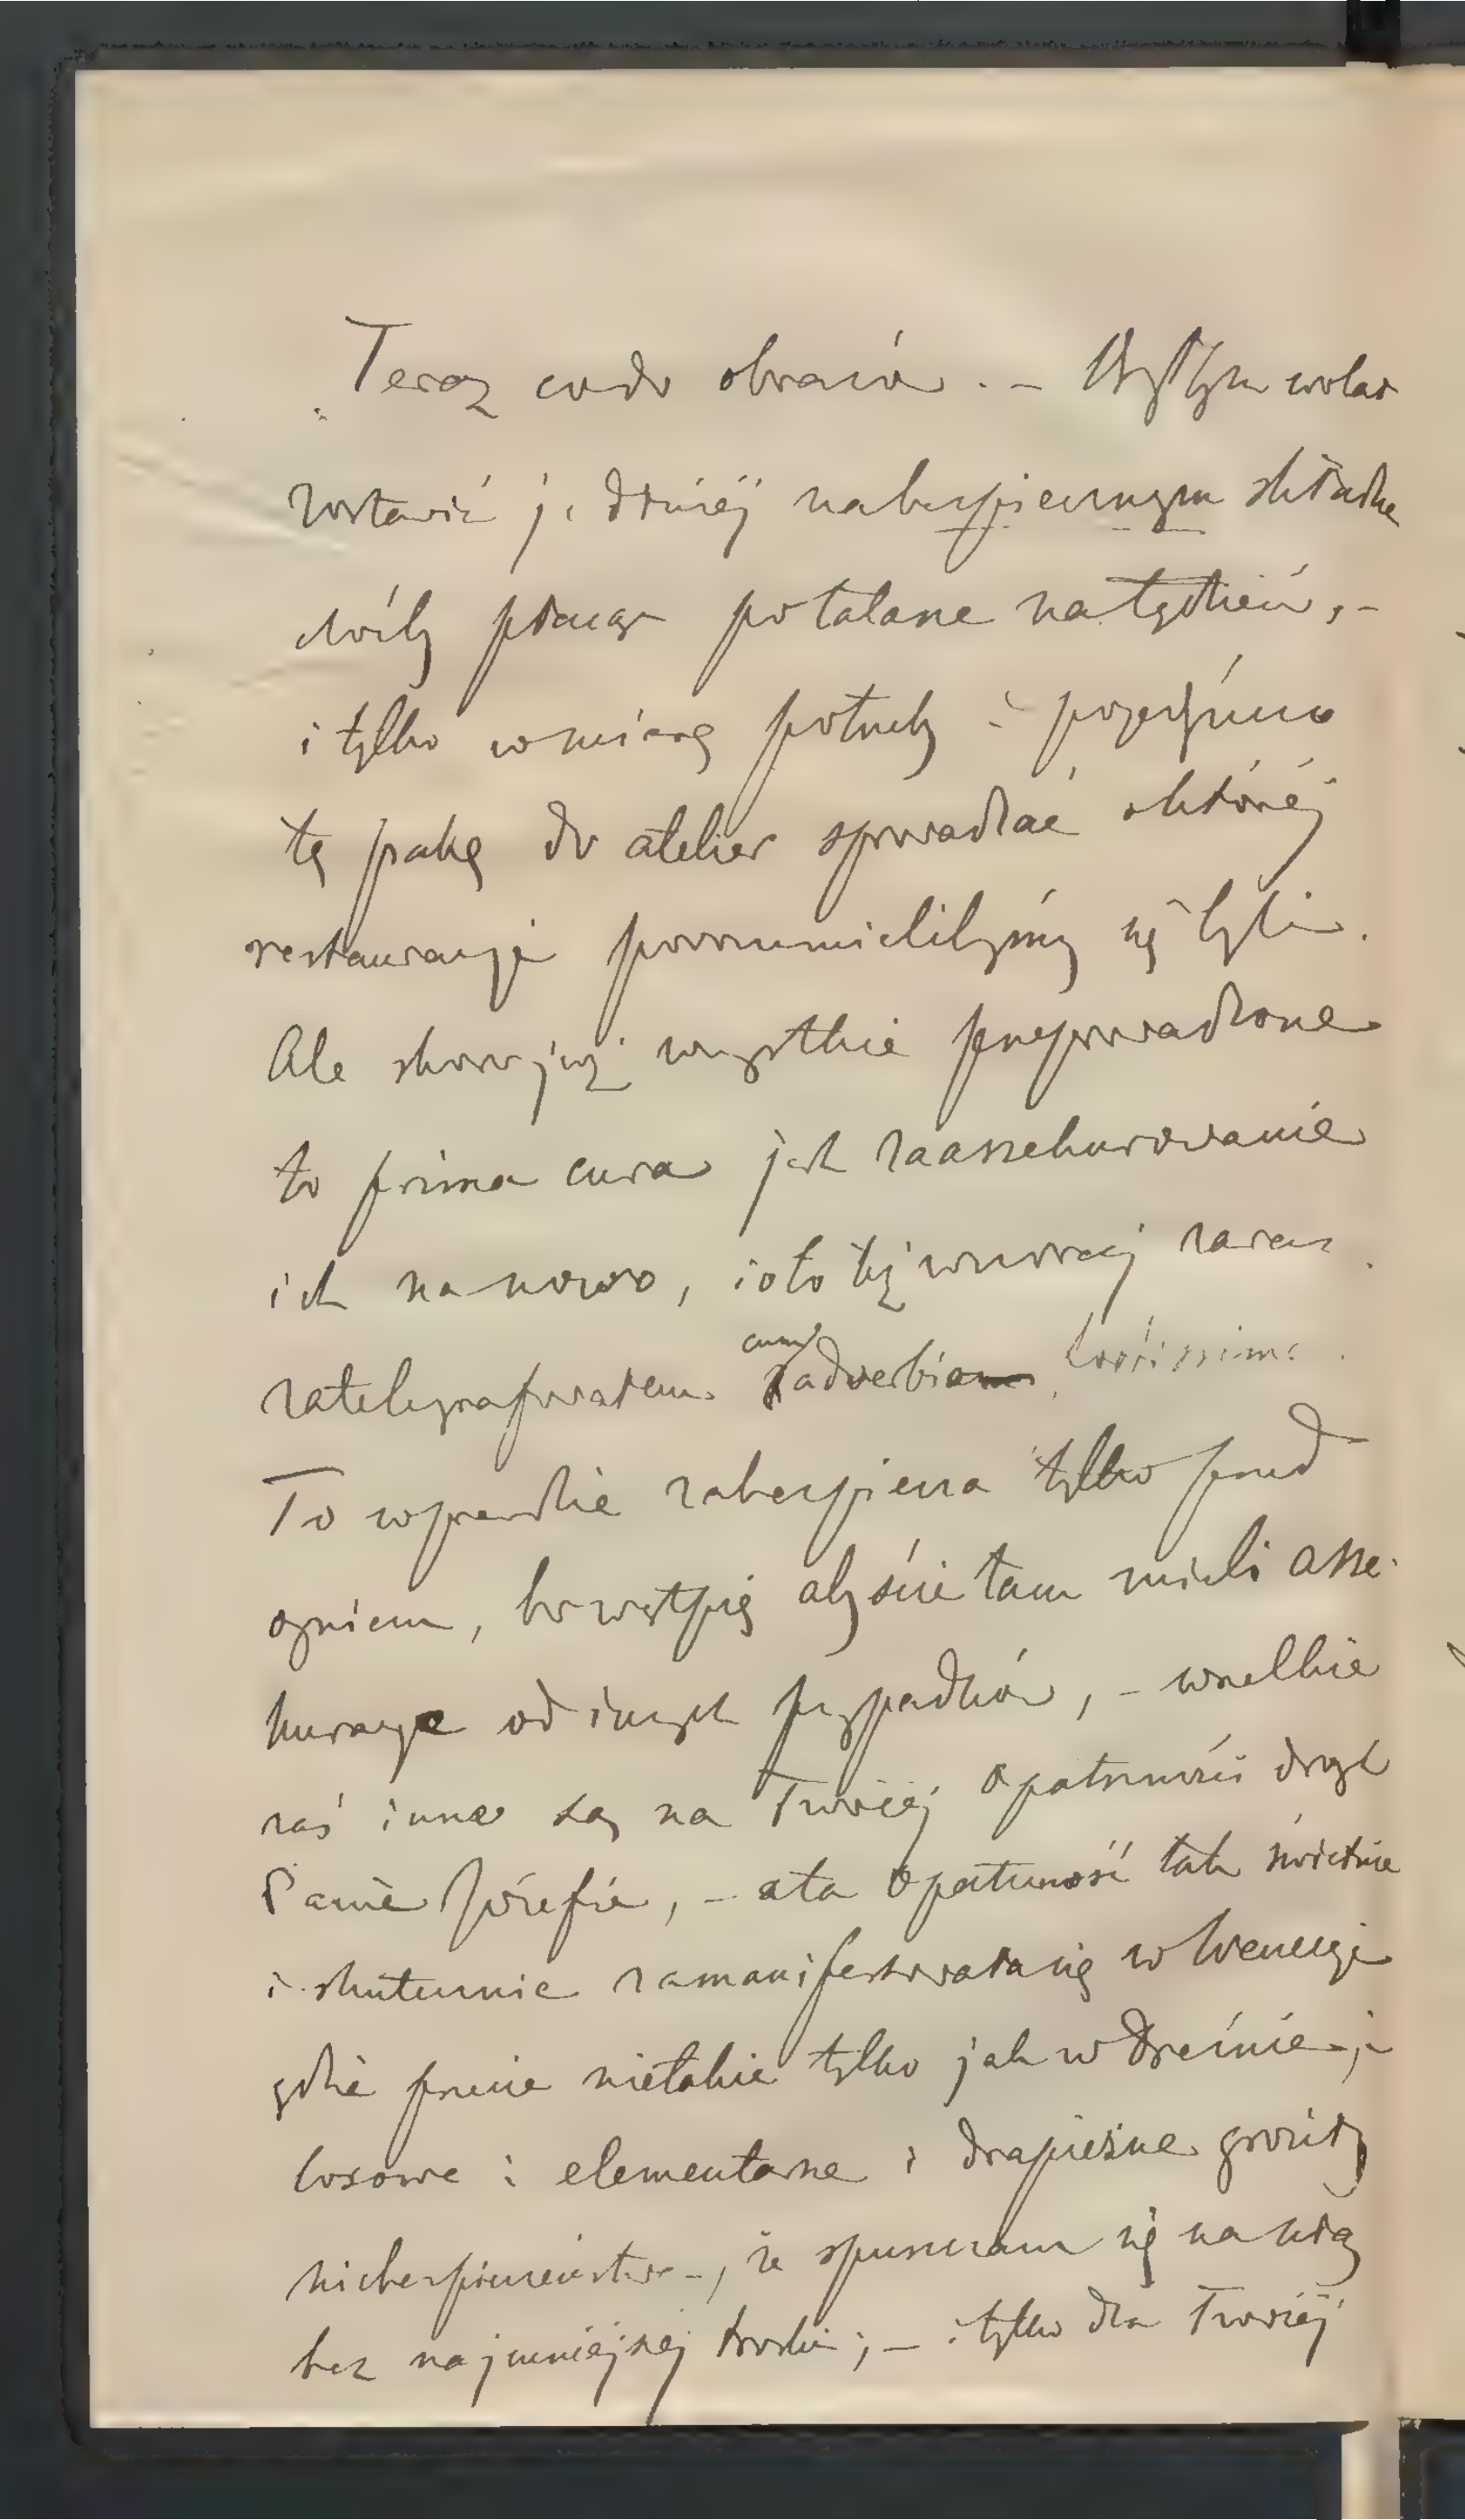 Teraz codo obrazów. – Był bym wolał
zostawić je dłużéj na bezpiecznym składzie
choćby płacąc po talarze na tydzień, –
i tylko w miarę potrzeby i pojedyńczo
tę pakę do atelier sprowadzać o któréj
restauracyje porozumielibyśmy się byli.
Ale skoro już wszystkie przeprowadzone
to prima cura jest zaassekurowanie
ich na nowo, i oto też wczoraj zaraz
zatelegrafowałem cum adverbio
To wprawdzie zabezpiecza tylko przed
ogniem, bo wątpię abyście tam mieli asse-
kuracye od innych przypadków, – wszelkie
zaś inne są na Twojéj opatrzności drogi
Panie Józefie, – a ta opatrzność tak świetnie
i skutecznie zamanifestowała się w Wenecyi
gdzie przecie nietakie tylko jak w Dreźnie,
losowe i elementarne i drapieżne groziły
niebezpieczeństwa –, że spuszczam się na nią
bez najmniejszéj troski; – i tylko dla Twojéj